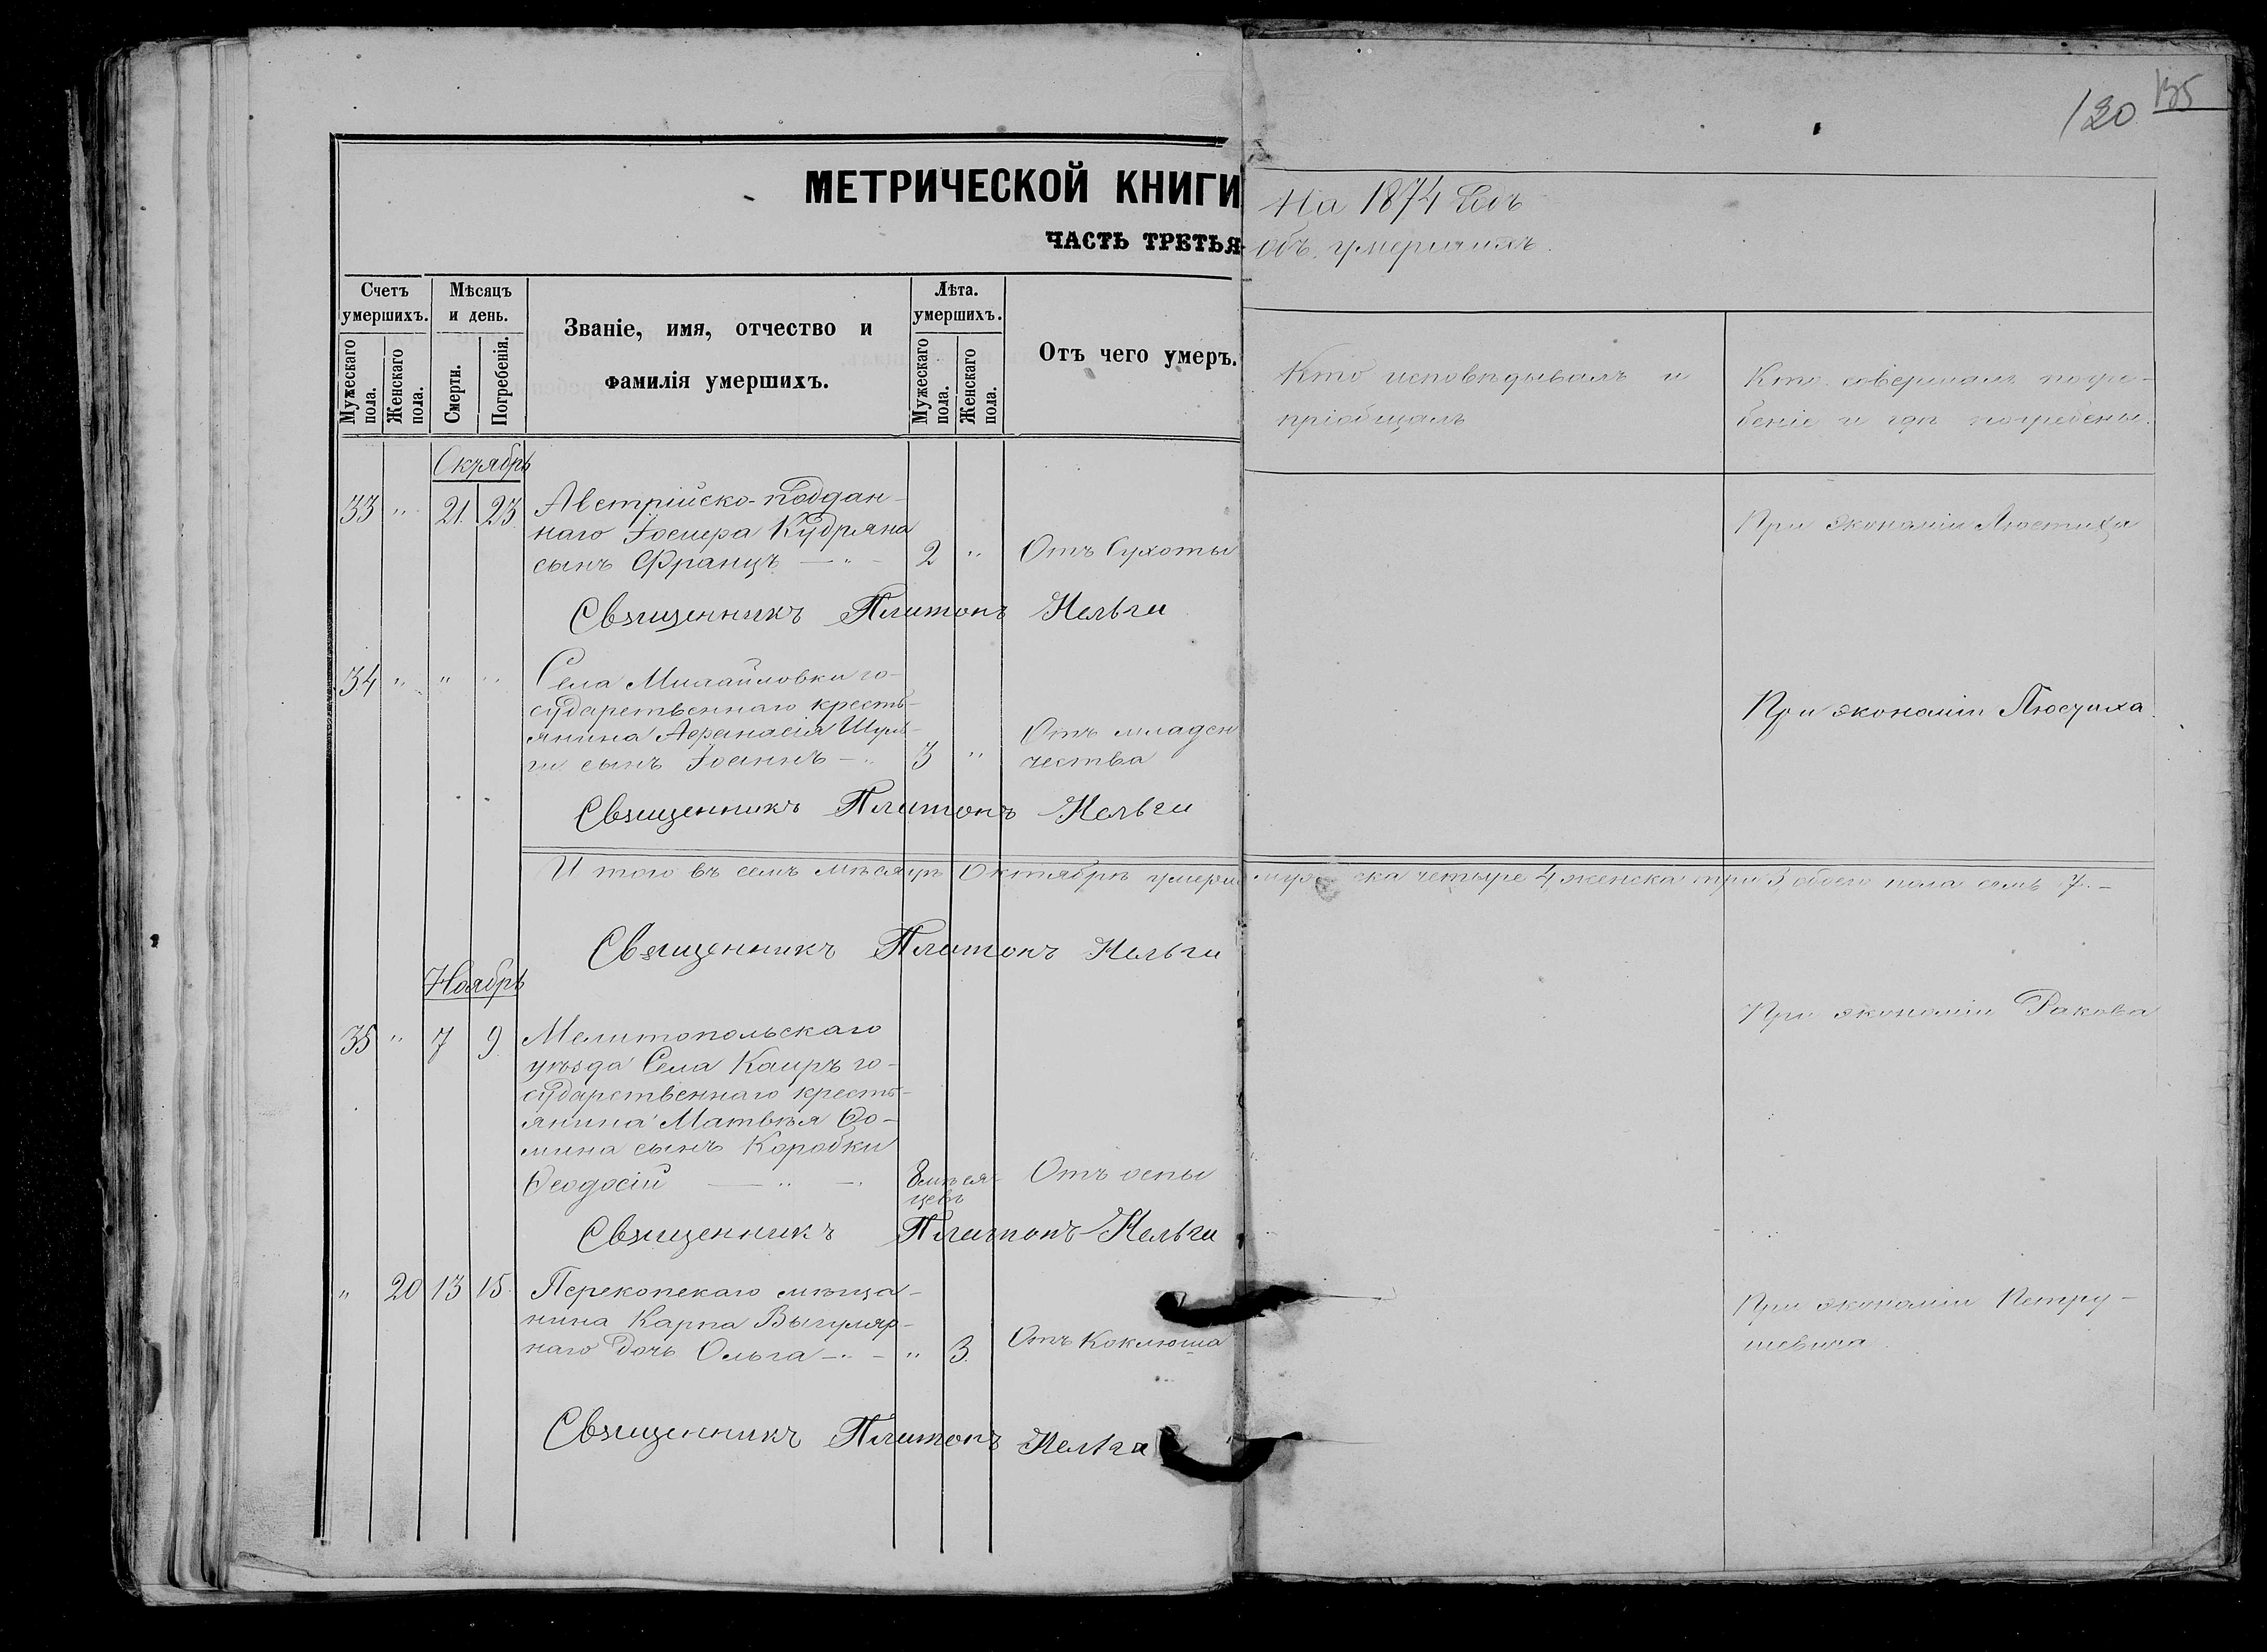 120 135
МЕТРИЧЕСКОЙ КНИГИ На 1874 Годъ
ЧАСТЬ ТРЕТЬЯ объ умершихъ.
Счетъ умершихъ.
Мужескаго пола.
Женскаго пола.
Мѣсяцъ и день.
Смерти.
Погребенія.
Званіе, имя, отчество и
фамилія умершихъ.
Лѣта. умершихъ.
Мужескаго пола.
Женскаго пола.
Отъ чего умеръ.
Кто исповѣдывалъ и
пріобщалъ
Кто совершалъ погре-
беніе и гдѣ погребены.
Октябрь
33 " 21 23 Австрійско-поддан-
наго Іосифа Кудряна
сынъ Францъ — " — 2 " Отъ Сухоты
При экономіи Люстиха
Священникъ Платонъ
34 " " " Села Михайловки го-
сударственнаго кресть-
янина Афанасія Шуль-
ги сынъ Іоаннъ — " 3 " Отъ младен
чества
При экономіи Люстиха
Священникъ Платонъ
И того въ семъ мѣсяцѣ Октябрѣ умерло мужеска четыре 4 женска три 3 обоего пола семь 7. —
Священникъ Платонъ
Ноябрь
35 " 7 9 Мелитопольскаго
уѣзда Села Каиръ го-
сударственнаго кресть-
янина Матвѣя Ѳо-
мина сынъ Коробки
Ѳеодосій — " — 8 мѣся-
цевъ
Отъ оспы
При экономіи Ракова
Священникъ Платонъ
" 20 13 15 Перекопскаго мѣща-
нина Карпа Выгуляр-
наго дочь Ольга — " — " 3. Отъ Коклюша
При экономіи Петру-
шевича
Священникъ Платонъ